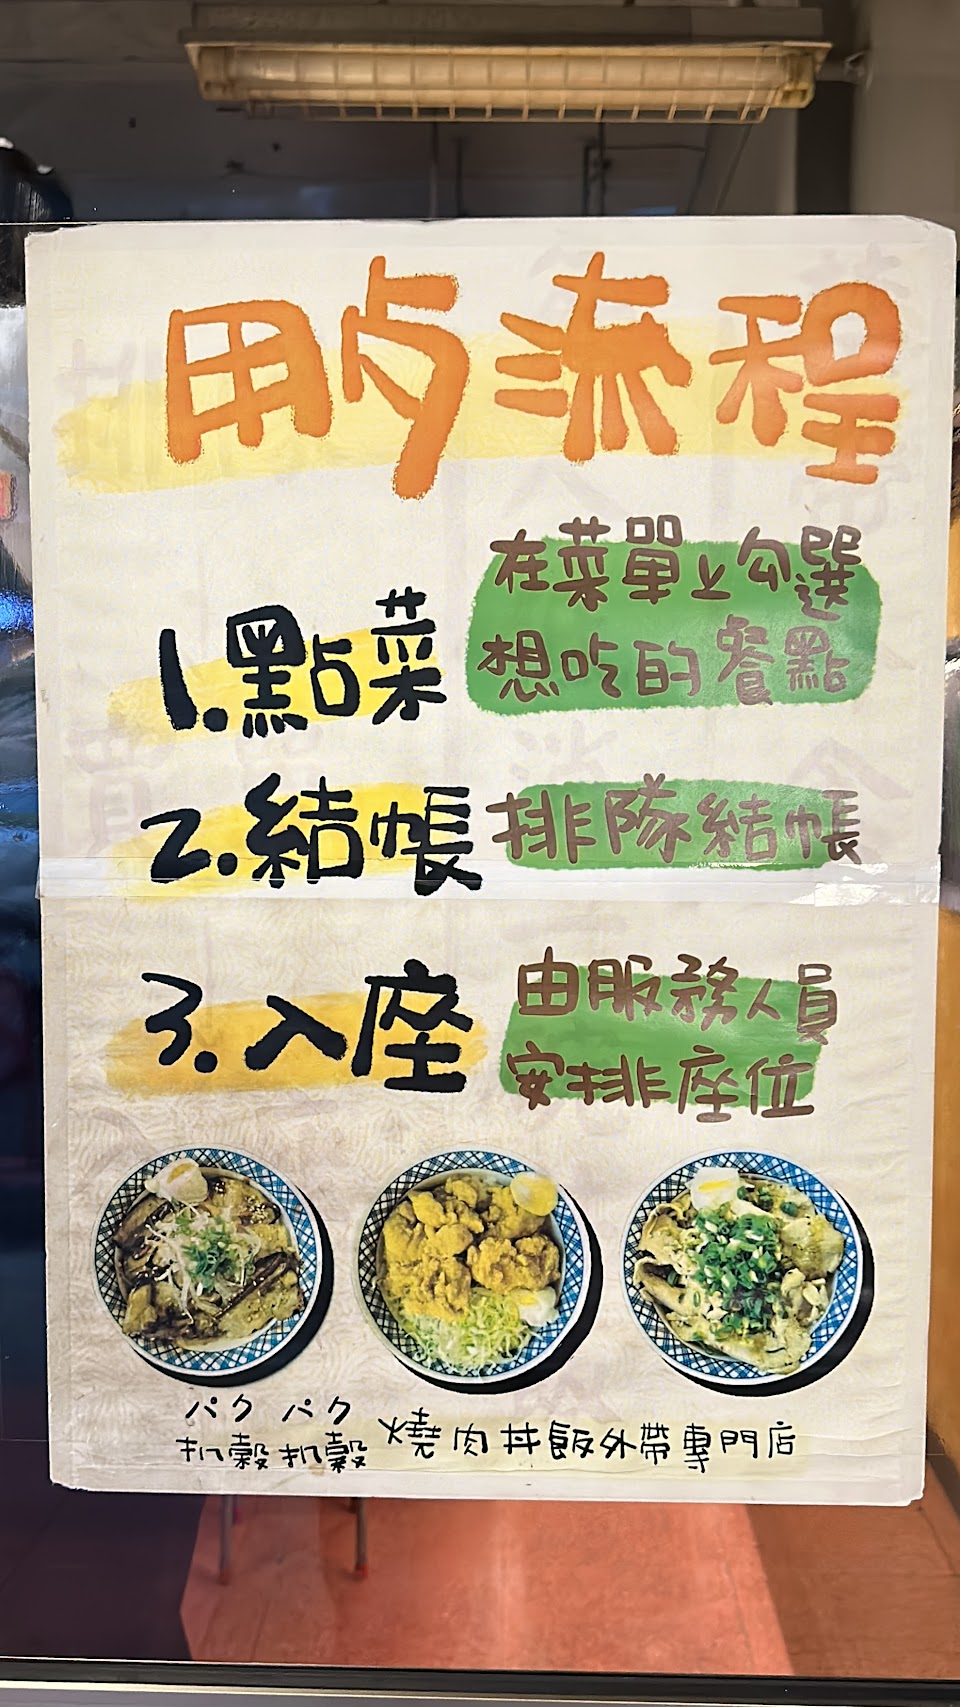 用歺流程
1.點菜
在菜單上勾選
想吃的餐點
2.結帳
排隊結帳
3.入座
由服務人員
安排座位
パク パク
扒穀扒穀 燒肉丼飯外帶專門店